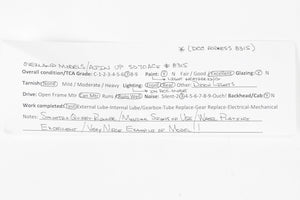 * (DCC ADDRESS 8315)
OVERLAND MODELS/AJIN UP SD70ACE # 8315
Overall condition/TCA Grade: C-1-2-3-4-5-6-7-8-9 Paint: Y N Fair / Good / Excellent Glazing: Y N
LIGHT WEATHERING
Tarnish: None Mild / Moderate / Heavy Lighting: Front / Rear Other: DITCH LIGHTS
Drive: Open Frame Mtr Can Mtr Runs / Runs Well Noise: Silent-2-3-4-5-6-7-8-9- Ouch! Backhead/Cab: Y N
Work completed: Test External Lube-Internal Lube/Gearbox-Tube Replace-Gear Replace-Electrical-Mechanical
Notes: SMOOTH QUIET RUNNER / MINIMAL SIGNS OF USE / PAINT
EXCELLENT / VERY NICE EXAMPLE OF MODEL!!